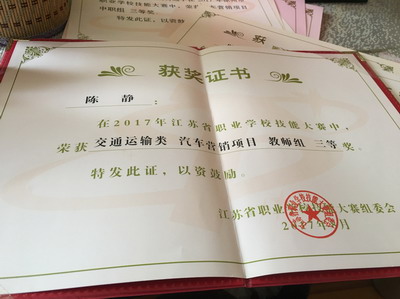 中职组 三等奖
特发此证，以资
获奖证书
陈静：
在2017年江苏省职业学校技能大赛中，
荣获 交通运输类 汽车营销项目 教师组 三等 奖。
特发此证，以资鼓励。
江苏省职业学校技能大赛组委会
2017年 月